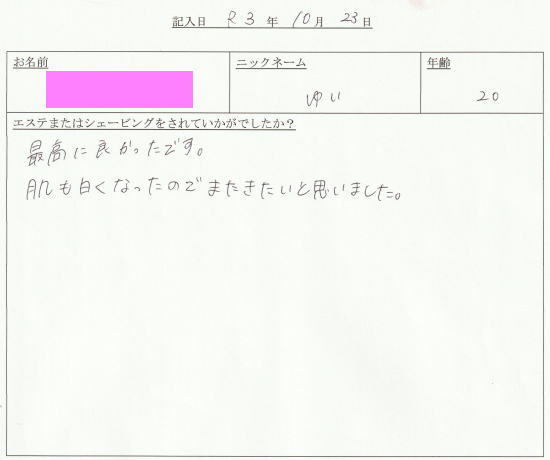 記入日 R3年 10月 23日
お名前 ニックネーム 年齢
ゆい 20
エステまたはシェービングをされていかがでしたか？
最高に良かったです。
肌も白くなったのでまたきたいと思いました。